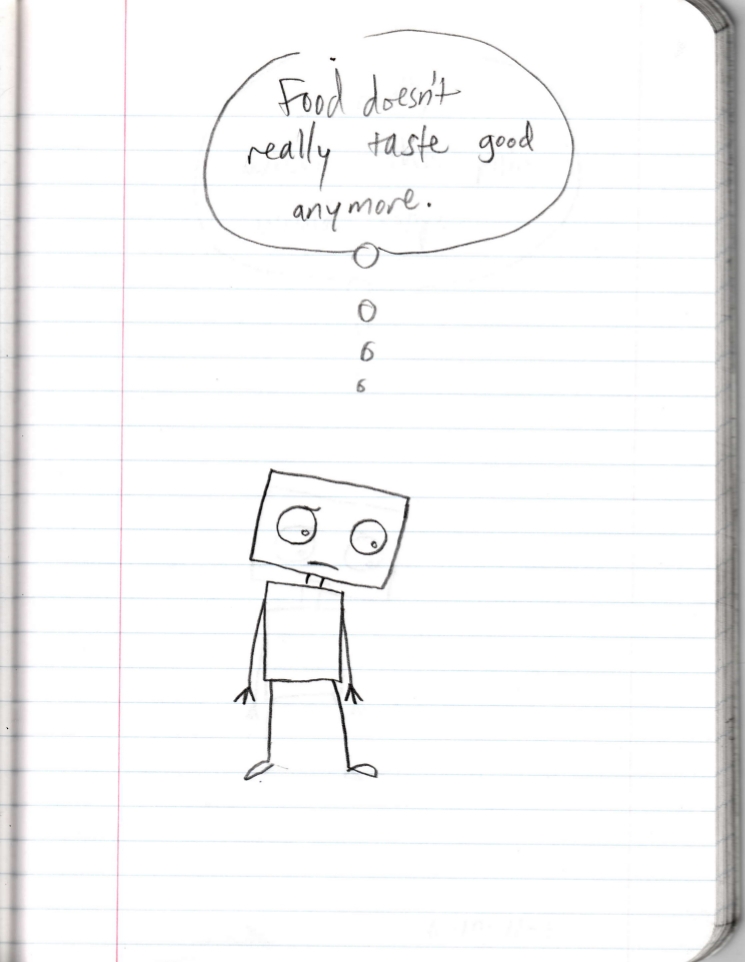 Food doesn't
really taste good
anymore.